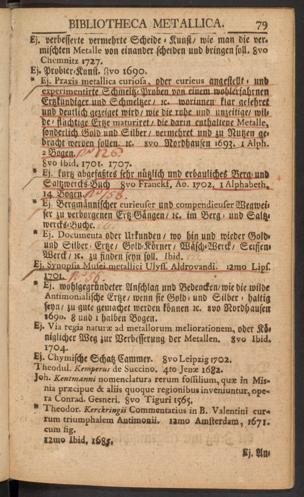 BIBLIOTHECA METALLICA. 79
Ej. verbesserte vermehrte Scheide-Kunst, wie man die ver-
mischten Metalle von einander scheiden und bringen soll. 8vo
Chemnitz 1727.
Ej. Probier-Kunst. 8vo 1690.
* Ej. Praxis metallica curiosa, oder curieus angestellt- und
experimentirte Schmeltz-Proben von einem wohlerfahrnen
Ertzkündiger und Schmeltzer, ꝛc. worinnen klar gelehret
und deutlich gezeiget wird, wie die rohe und unzeitige, wil-
de, flüchtige Ertze maturiret, die darin enthaltene Metalle,
sonderlich Gold und Silber, vermehret und zu Nutzen ge-
bracht werden sollen. ꝛc. 8vo Nordhausen 1693. 1 Alph.
2 Bogen.
8vo ibid. 1701. 1707.
* Ej. kurtz abgefaßtes sehr nützlich und erbauliches Berg- und
Saltzwercks-Buch 8vo Franckf. Ao. 1702. 1 Alphabeth,
14 Bogen.
* Ej. Bergmännischer curieuser und compendieuser Wegwei-
ser zu verborgenen Ertz-Gängen, ꝛc. im Berg- und Saltz-
wercks-Buche.
* Ej. Documenta oder Urkunden, wo hin und wieder Gold-
und Silber-Ertze, Gold-Körner, Wäsch-Werck, Seiffen-
Werck, ꝛc. zu finden seyn soll. Ibid.
Ej. Synopsis Musei metallici Ulyss. Aldrovandi. 12mo Lips.
1701.
* Ej. wohlgegründeter Anschlag und Bedencken, wie die wilde
Antimonialische Ertze, wenn sie Gold- und Silber-haltig
seyn, zu gute gemacht werden können ꝛc. 8vo Nordhausen
1690. 8 und 1 halben Bogen.
Ej. Via regia naturæ ad metallorum meliorationem, oder Kö-
niglicher Weg zur Verbesserung der Metallen. 8vo Ibid.
1704.
Ej. Chymische Schatz Cammer. 8vo Leipzig 1702.
Theodul. Kemperus de Succino, 4to Jenæ 1682.
Joh. Kentmanni nomenclatura rerum fossilium, quæ in Mis-
nia præcipue & aliis quoque regionibus inveniuntur, ope-
ra Conrad. Gesneri. 8vo Tiguri 1565.
* Theodor. Kerckringii Commentatius in B. Valentini cur-
rum triumphalem Antimonii. 12mo Amsterdam, 1671.
cum fig.
12mo Ibid, 1685.
Ej. An-